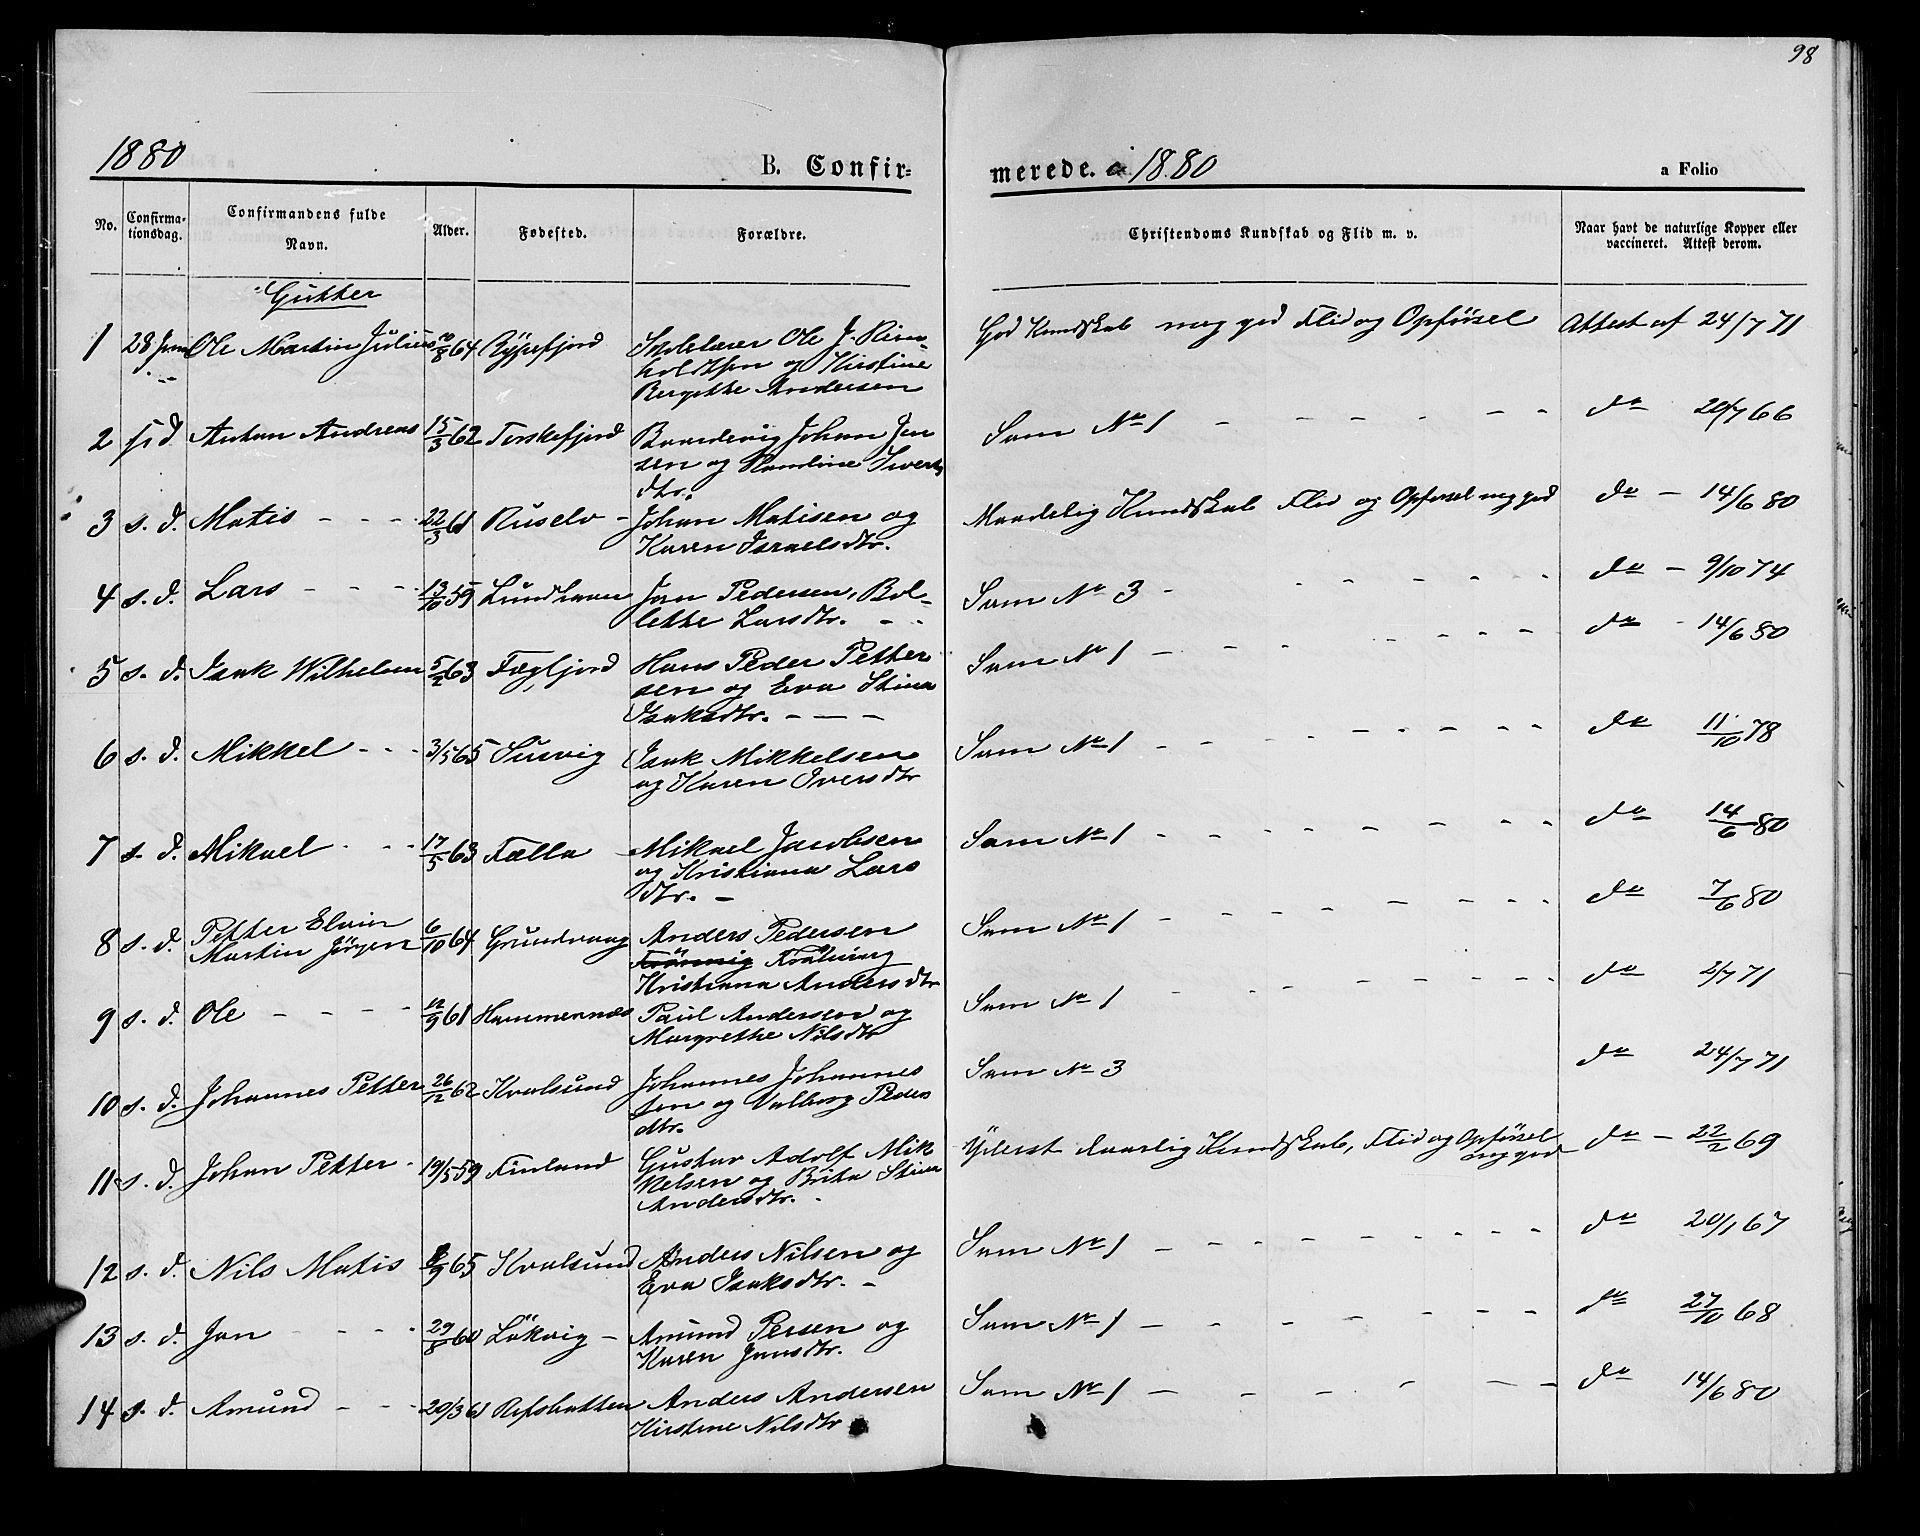 98
1880 B. Confirmerede. i 1880 a Folio
No. Confirmationsdag. Confirmandens fulde Navn. Alder. Fødested. Forældre. Christendoms Kundskab og Flid m. v. Naar havt de naturlige Kopper eller vaccineret. Attest derom.
Gutter
1 28 Juni Ole Martin Julius 10/8 64 Rypefjord Skolelærer Ole J. Rein- God Kundskab meg god Flid og Opførsel Attest af 24/7 71
holdtsen og Kirstine
Bergitte Andersen
2 s. d. Anton Andreas 15/3 62 Torskefjord Johan Jen Som No 1 - - - - - do 20/7 66
sen og Handine Iverts
dtr.
3 s. d. Matis - - - 22/3 61 Ruselv - Johan Matisen og Maadelig Kundskab Flid og Opførsel meg god do - 14/6 80
Karen Israelsdtr.
4 s. d. Lars - - - 13/10 59 Lundhavn Jon Pedersen, Bol- Som No 3 - - - - do - 9/10 74
lette Larsdtr. - -
5 s. d. Isak Wilhelm 5/2 63 Fægfjord Hans Peder Petter Som No 1 - - - - do - 14/6 80
sen og Eva Stina
Isaksdtr. - - -
6 s. d. Mikkel - - - 3/5 65 Susvig Isak Mikkelsen Som No 1 - - - - do 11/10 78
og Karen Iversdtr
7 s. d. Mikael - - - 17/5 63 Fælla Mikael Jacobsen Som No 1 - - - - do 14/6 80
og Kristiana Lars
dtr. -
8 s. d. Petter Elvin 6/10 64 Grundvaag Anders Pedersen Som No 1 - - - - do 7/6 80
Martin Jørgen
Kristiana Andersdtr
9 s. d. Ole - - - - 12/9 61 Hammernæs Paul Andersen og Som No 1 - - - - do 2/7 71
Margrethe Nilsdtr
10 s. d. Johannes Petter 26/12 62 Kvalsund Johannes Johannes Som No 3 do 24/7 71
sen og Valborg Peders
dtr.
11 s. d. Johan Petter - 19/5 59 Finland Gustav Adolf Mik Yderst daarlig Kundskab, Flid og Opførsel meg god do - 22/2 69
kelsen og Brita Stina
Andersdtr. -
12 s. d. Nils Matis 8/9 65 Kvalsund Anders Nilsen og Som No 1 - - - - do 20/1 67
Eva Isaksdtr. -
13 s. d. Jon - - - 29/8 60 Løkvig - Amund Persen og Som No 1 - - - - do 27/10 68
Karen Jonsdtr.
14 s. d. Amund - - - 20/3 61 Refsbotten Anders Andersen Som No 1 - - - - do 14/6 80
Kirstine Nilsdtr